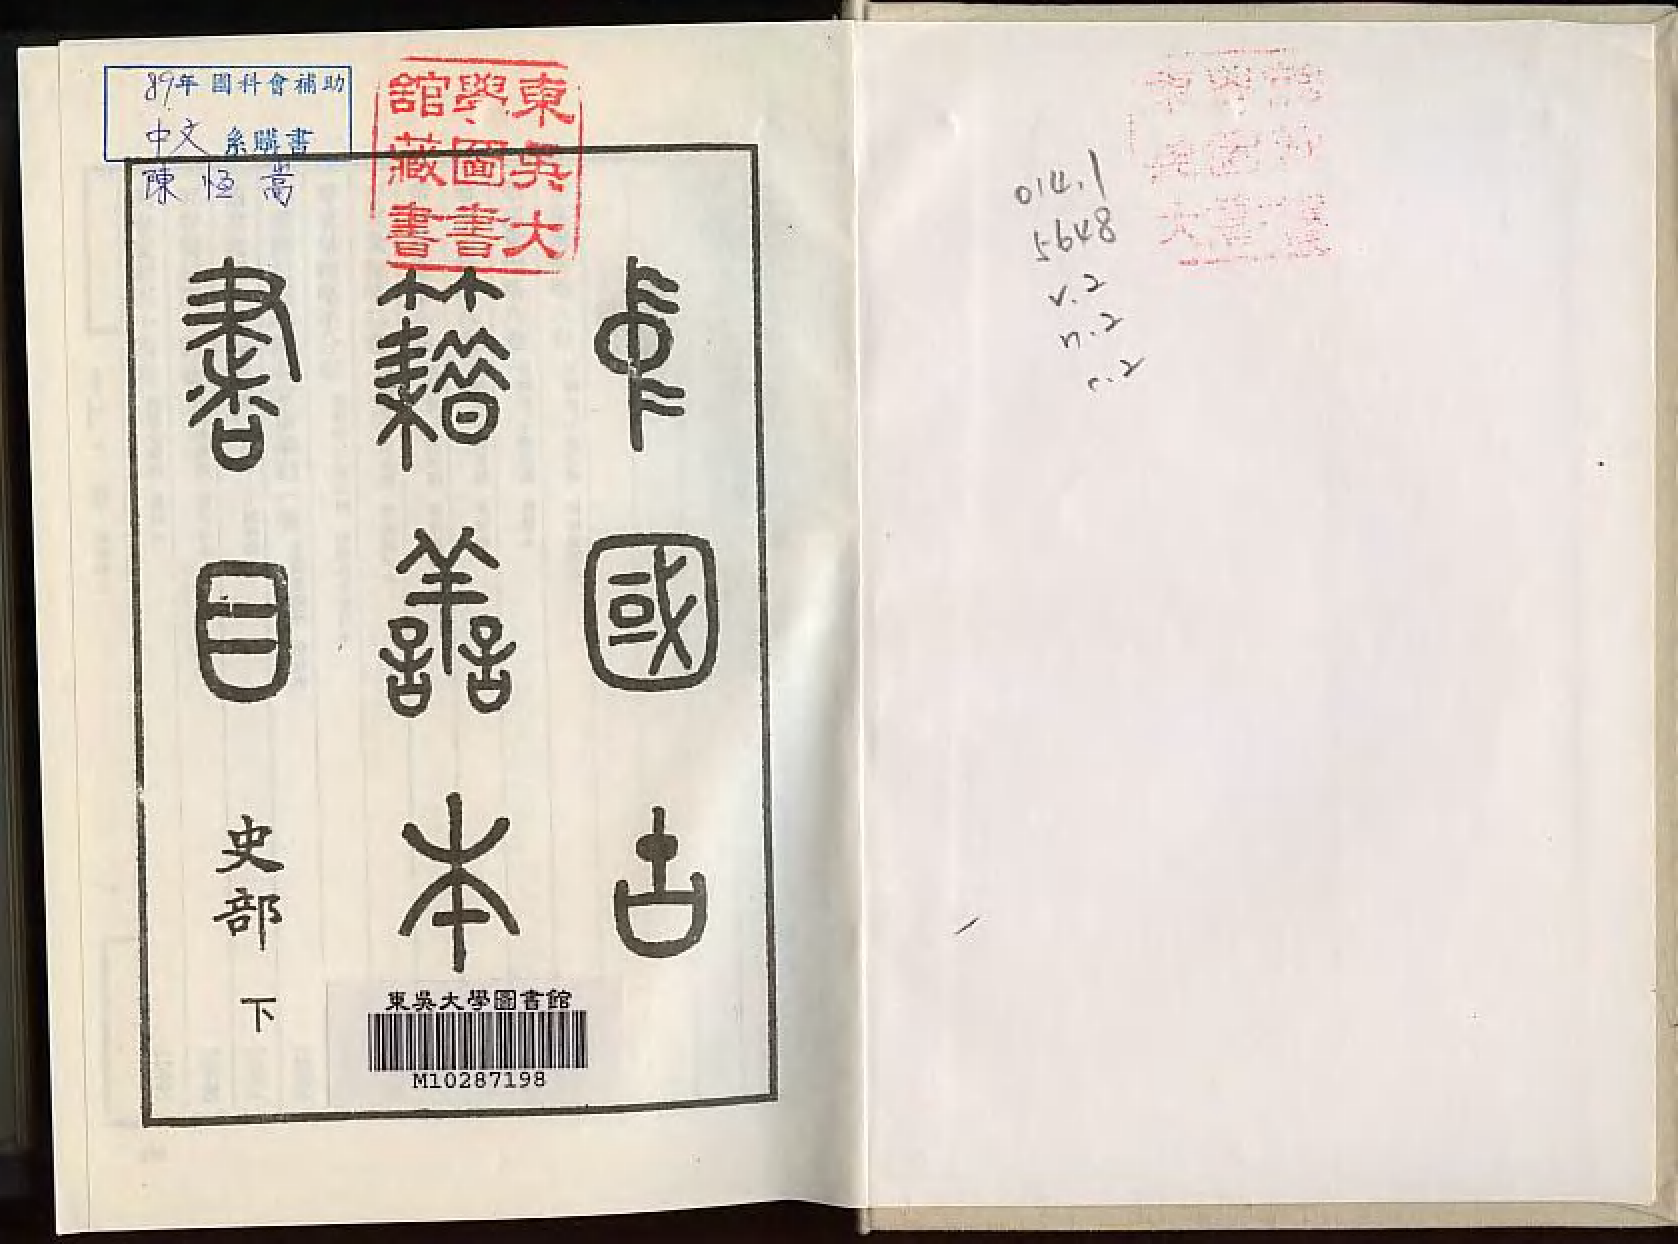 89年 國科會補助
中文 系購書
陳恆嵩
東吳大
學圖書
館藏書
中國古
籍善本
書目 史部 下
東吳大學圖書館
M10287198
014.1
5648
v.2
n.2
c.2